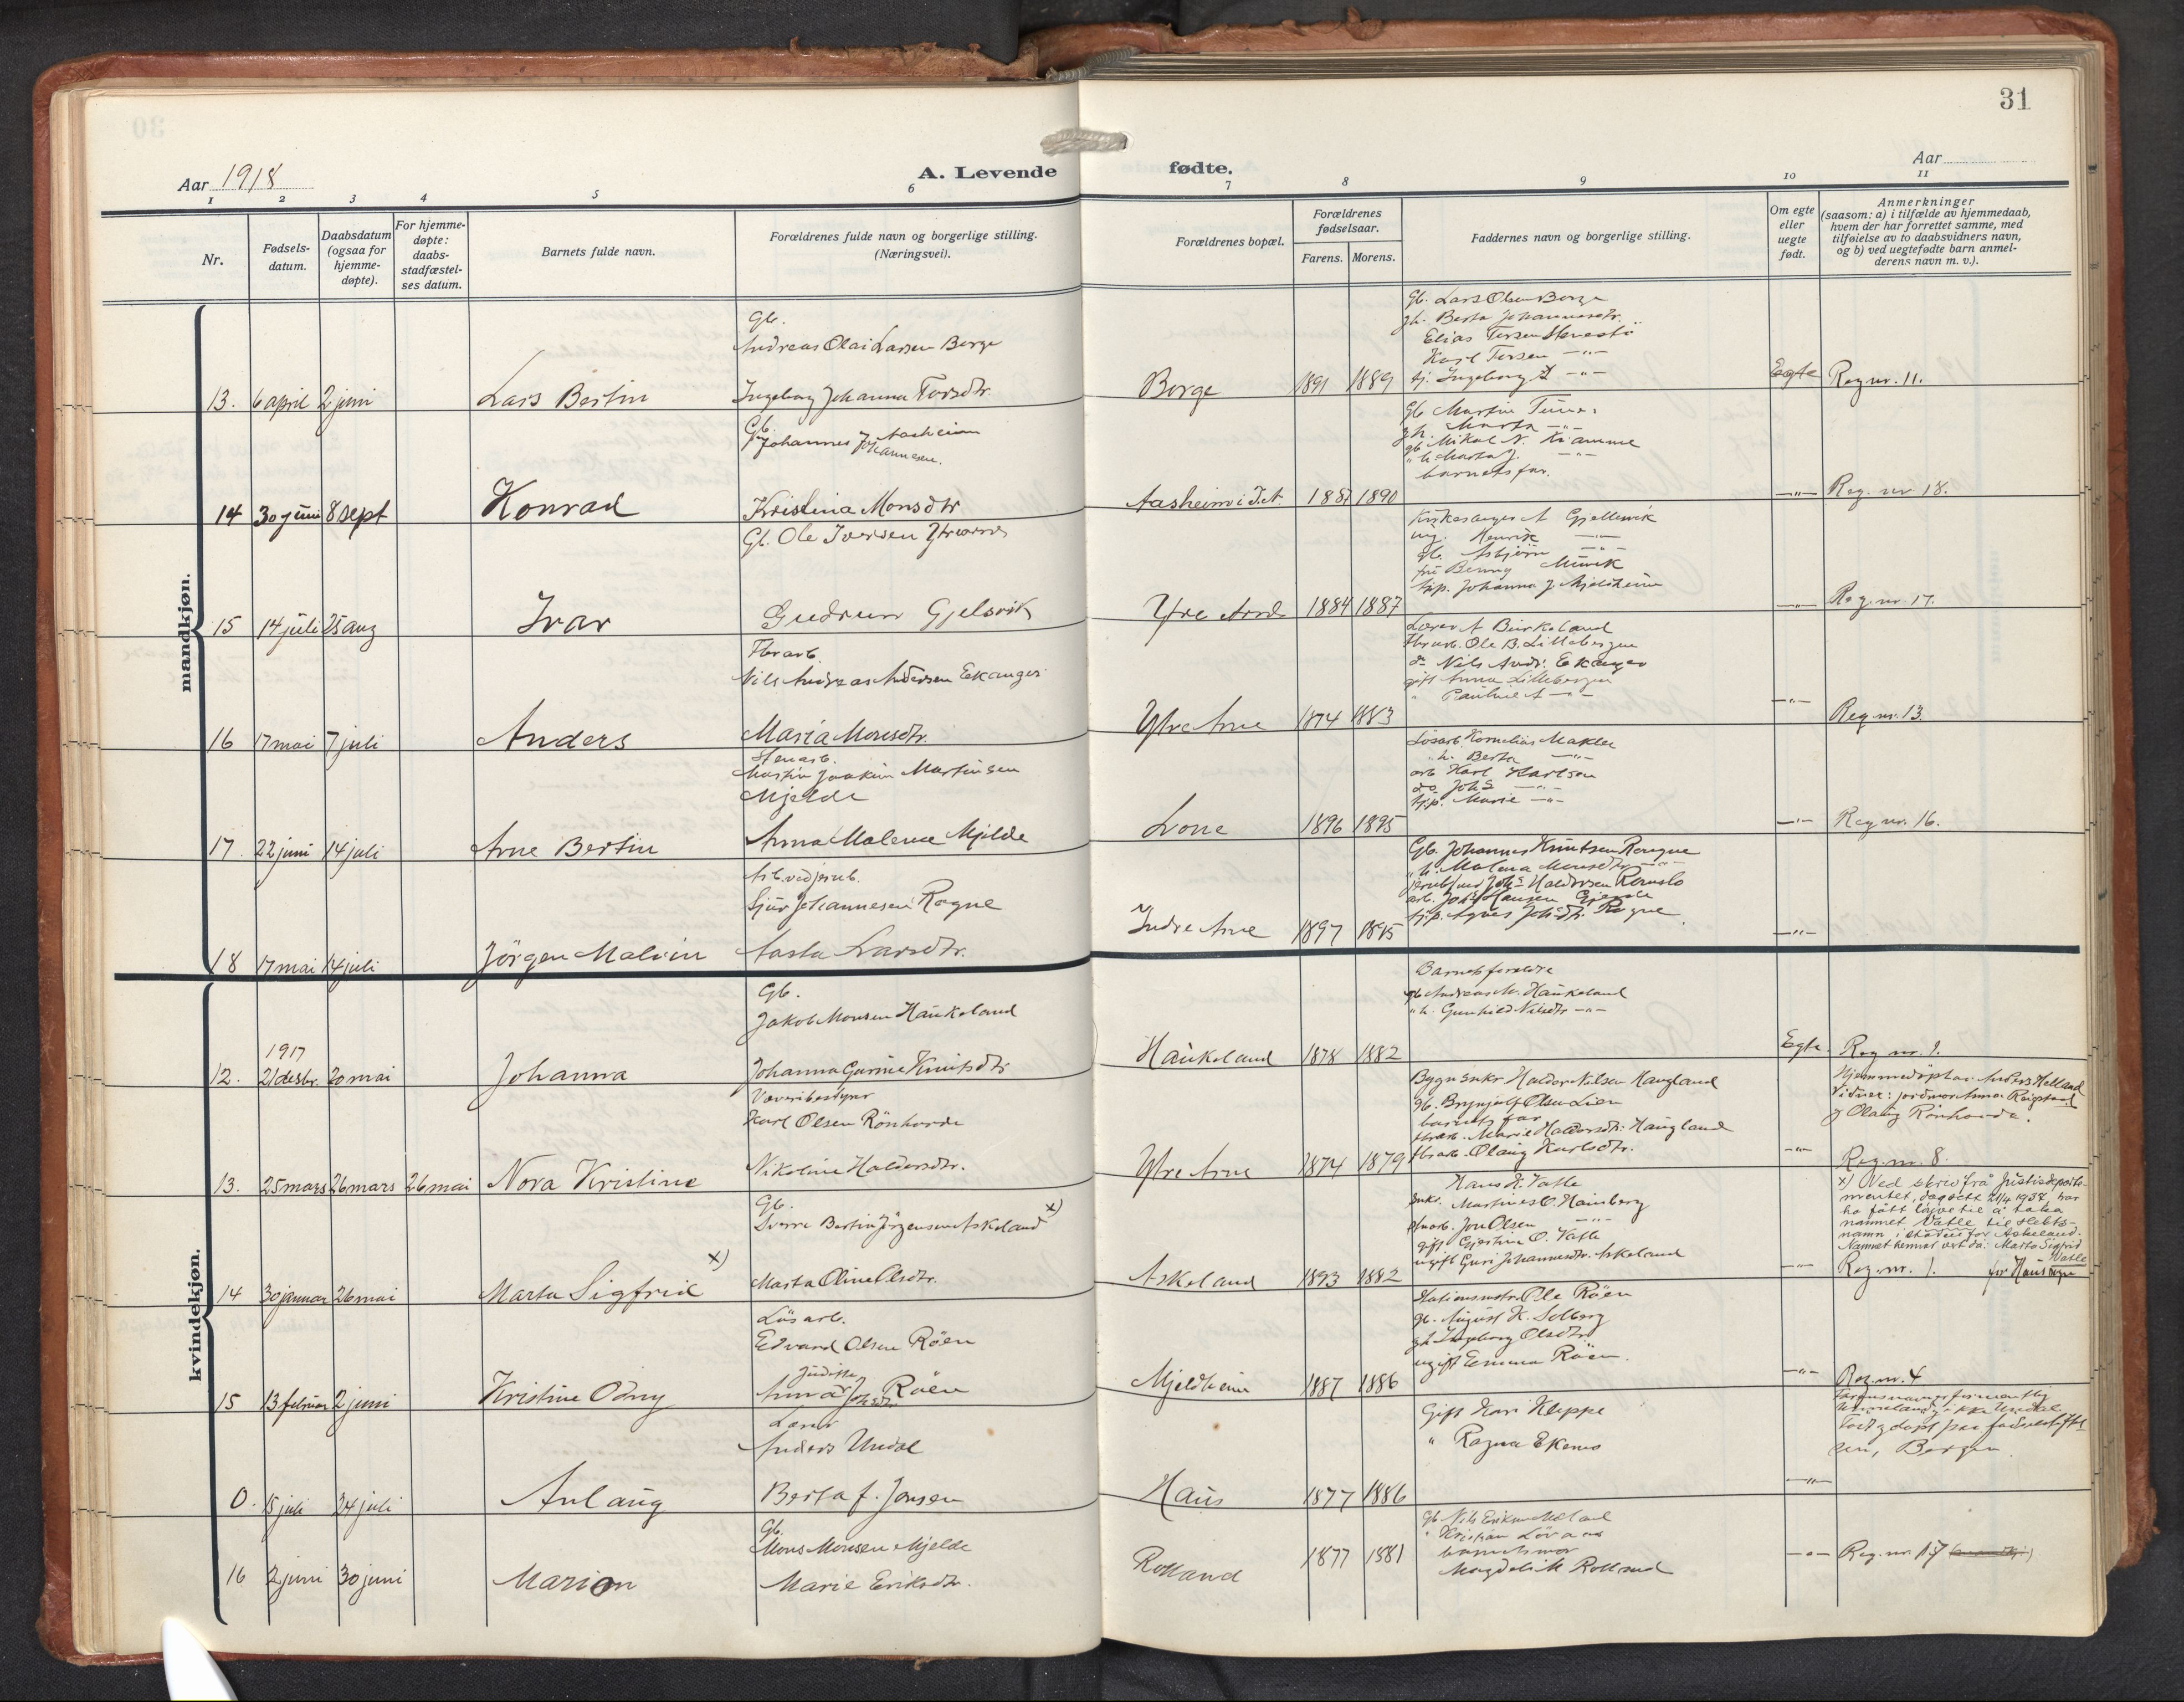 31
Aar 1918
A. Levende fødte.
Aar
1 2 3 4 5 6 7 8 9 10 11
Nr.
Fødsels-
datum.
Daabsdatum
(ogsaa for
hjemme-
døpte).
For hjemme-
døpte:
daabs-
stadfæstel-
ses datum.
Barnets fulde navn.
Forældrenes fulde navn og borgerlige stilling.
(Næringsvei).
Forældrenes bopæl.
Forældrenes
fødselsaar.
Farens. Morens.
Faddernes navn og borgerlige stilling.
Om egte
eller
uegte
født.
Anmerkninger
(saasom: a) i tilfælde av hjemmedaab,
hvem der har forrettet samme, med
tilføielse av to daabsvidners navn,
og b) ved uegtefødte barn anmel-
derens navn m. v.).
mandkjøn.
Gb.
Andreas Olai Larsen Borge
13. 6 april 2 juni Lars Bertin Ingeborg Johanna Torsdtr.
Borge 1891 1889
Gb. Lars Olsen Borge
gh. Berta Johannesdtr.
Elias Torsen
Karl Torsen —"—
tj. Ingeborg T —"—
Egte Reg nr. 11.
Gb. Johannes Johannesen Aasheim
14 30 juni 8 sept Konrad Kristina Monsdtr
Aasheim i 1890
Gb Martin Tunes
gh. Marta —"—
gb. Mikal N. Tramme
"h Marta J. —"—
barnets far.
—"— Reg. nr 18.
Gb. Ole Iversen Ytrearne
15 14 juli 25 aug Ivar Gudrun Gjelsvik
Ytre Arne 1884 1887
Kirkesanger A Gjellesvik
ung. Henrik —"—
gb. Asbjörn —"—
frk Benny
tjp. Johanna J. Mjeldheim
—"— Reg. nr. 17.
Fbrarb.
Nils Andreas Andersen Ekanger
16 17 mai 7 juli Anders Maria Monsdtr.
Ytre Arne 1874 1883
Lærer A Birkeland
Fbrarb. Ole B. Lillebergen
do Nils Andr. Ekanger
gift Anna Lillebergen
" Pauline A —"—
—"— Reg. nr. 13.
Stenarb.
Martin Joakim Martinsen
Mjelde
17. 22 juni 14 juli Arne Bertin Anna Malena Mjelde
Lone 1896 1895
Lösarb. Kornelius
"h. Berta —"—
arb Karl Karlsen
do Johs —"—
tjp. Marie —"—
—"— Reg nr. 16.
Arb. ved jernb.
Sjur Johannesen Rogne
18 17 mai 14 juli Jörgen Malvin Aasta Larsdtr.
Indre Arne 1897 1895
Gb. Johannes Knutsen Rongne
"h. Malena Monsdtr —"—
Johs Haldorsen Romslo
arb. Johs Hansen
tjp. Agnes Johsdtr. Rogne
—"—
kvindekjøn.
Gb.
Jakob Monsen Haukeland
1917
12. 21 desbr. 20 mai Johanna Johanna Gurine Knutsdtr
Haukeland 1878 1882
Barnets foreldre
gb Andreas M. Haukeland
"h. Gunhild Nilsdtr —"—
Egte Reg nr. 1.
Væveribestyrer
Karl Olsen Rönhovde
13. 25 mars 26 mars 26 mai Nora Kristine Nikoline Haldorsdtr.
Ytre Arne 1874 1879
Bygn snkr Haldor Nilsen Haugland
gb. Brynjulf Olsen Lien
barnets far
fbrarb. Marie Haldorsdtr. Haugland
fbrarb. Olaug Karlsdtr.
Hjemmedöpt av Anders Helland
Vidner: jordmor Anna Reigstad
og Olaug Rönhovde.
—"— Reg. nr. 8.
Gb.
Sverre Bertin Jörgensen Askeland x)
14 30 januar 26 mai Marta Sigfrid x) Marta Oline Olsdtr.
Askeland 1893 1882
Hans K. Vatle
Snkr. Martines O. Hamberg
Jon Olsen —"—
gift Gjertine O. Vatle
ugift Guri Johannesdtr. Askeland
x) Ved skriv frå Justisdeparte-
mentet, dagsett 21/4 1938, har
ho fått löyve til å taka
namnet Vatle til slekts-
namn i staden for Askeland.
Namnet hennar vert då: Marta Sigfrid
Vatle
—"— Reg. nr. 1. for Haus sogn
Lösarb.
Edvard Olsen Röen
15 13 februar 2 juni Kristine Odny Anna Juditte Johsdtr. Röen
Mjeldheim 1887 1886
Stationsmstr. Ole Röen
gb. August K. Solberg
gh Ingeborg Olsdtr
ugift Emma Röen.
—"— Reg. nr. 4
Lærer
Anders Undal
0. 15 juli 24 juli Aslaug Berta f. Jonsen
Haus 1877 1886
Gift Kari Kleppe
" Ragna Ekemo
ikke Undal
Född og döpt paa födselsstiftel-
sen, Bergen
—"—
Gb.
Mons Monsen Mjelde
16 2 juni 30 juni Marion Marie Eriksdtr.
Rolland 1877 1881
gb. Nils Eriksen
" Kristian
barnets mor
Magdeli M Rolland
—"— Reg. nr. 17